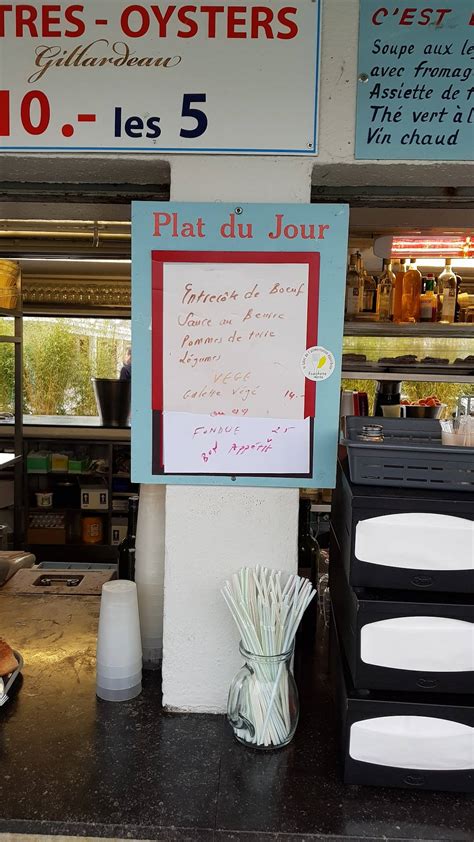 TRES - OYSTERS
Gillardeau
10.- les 5
C'EST
Soupe aux lé
avec fromag
Assiette de f
Thé vert à l
Vin chaud
Plat du Jour
Entrecôte de Boeuf
Sauce au Beurre
Pommes de terre
Légumes
VEGE
Galette Végé 14.-
FONDUE 25
Bon Appétit